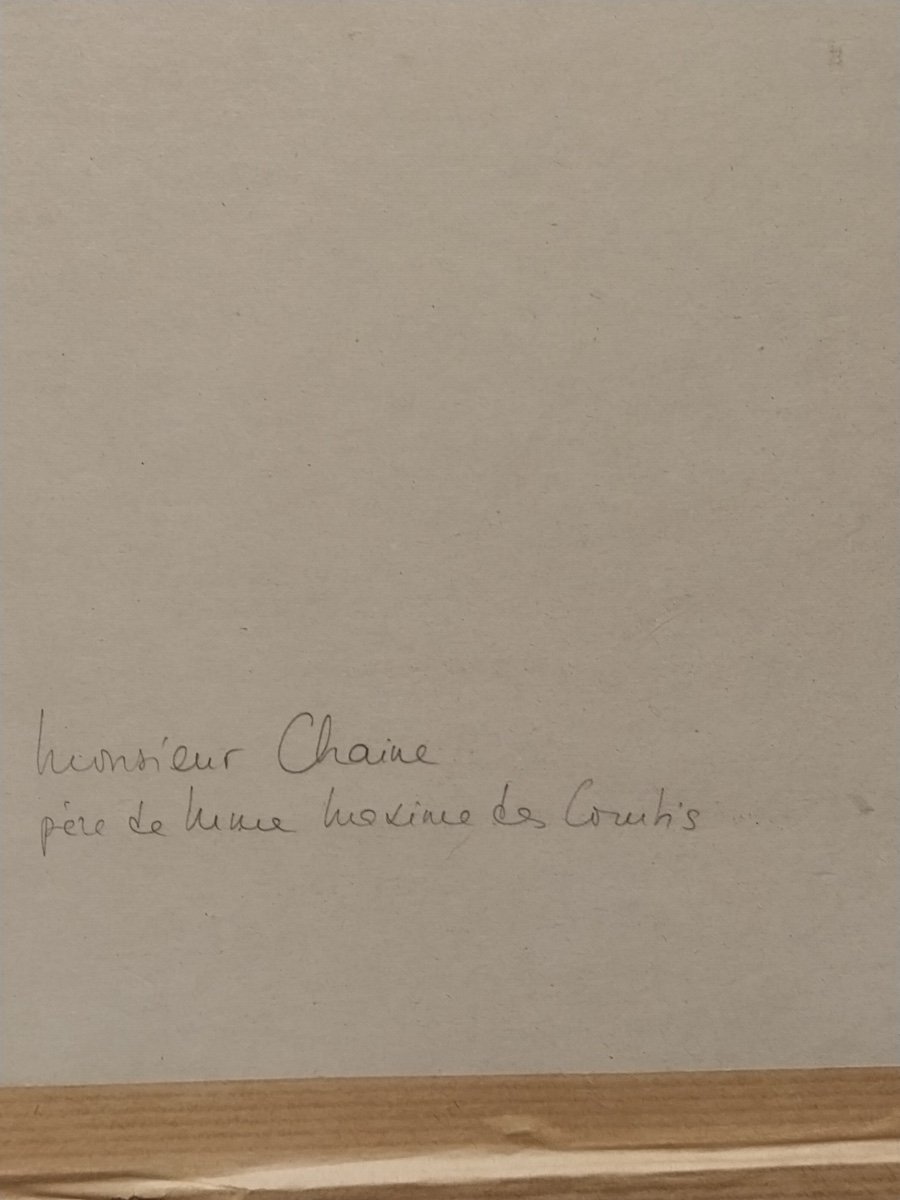 Monsieur Chaine
père de Mme Maxime des Comtis